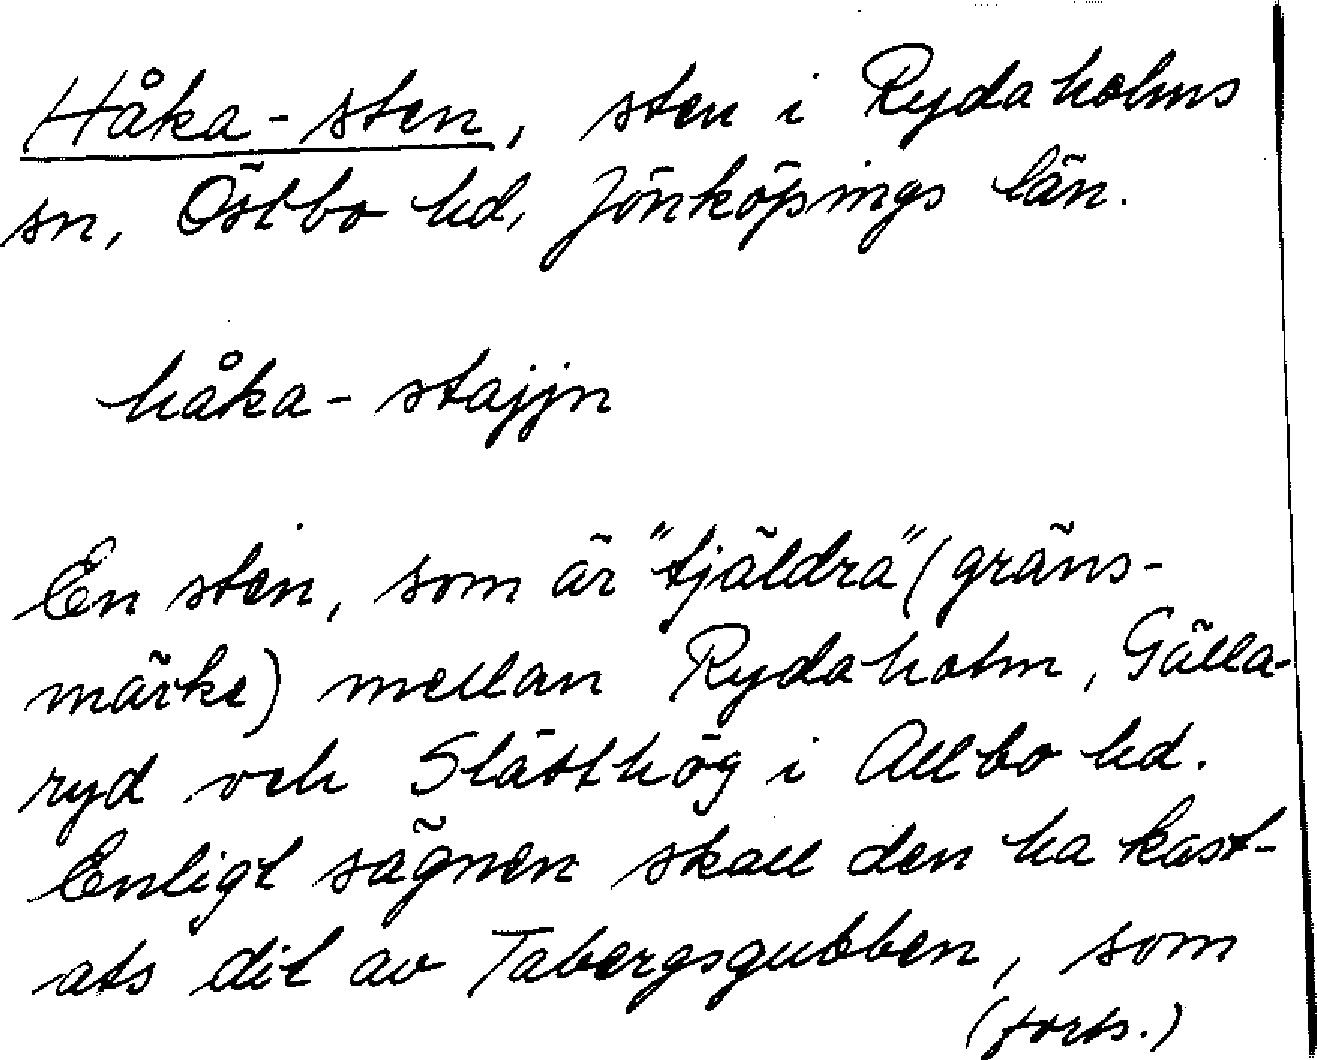 Håka-sten, sten i Rydaholms
sn, Östbo hd, Jönköpings län.
håka-stajjn
En sten, som är "tjäldra" (gräns-
märke) mellan Rydaholm, Gälla-
ryd och Slätthög i Allbo hd.
Enligt sägnen skall den ha kast-
ats dit av Tabergsgubben, som
(forts.)